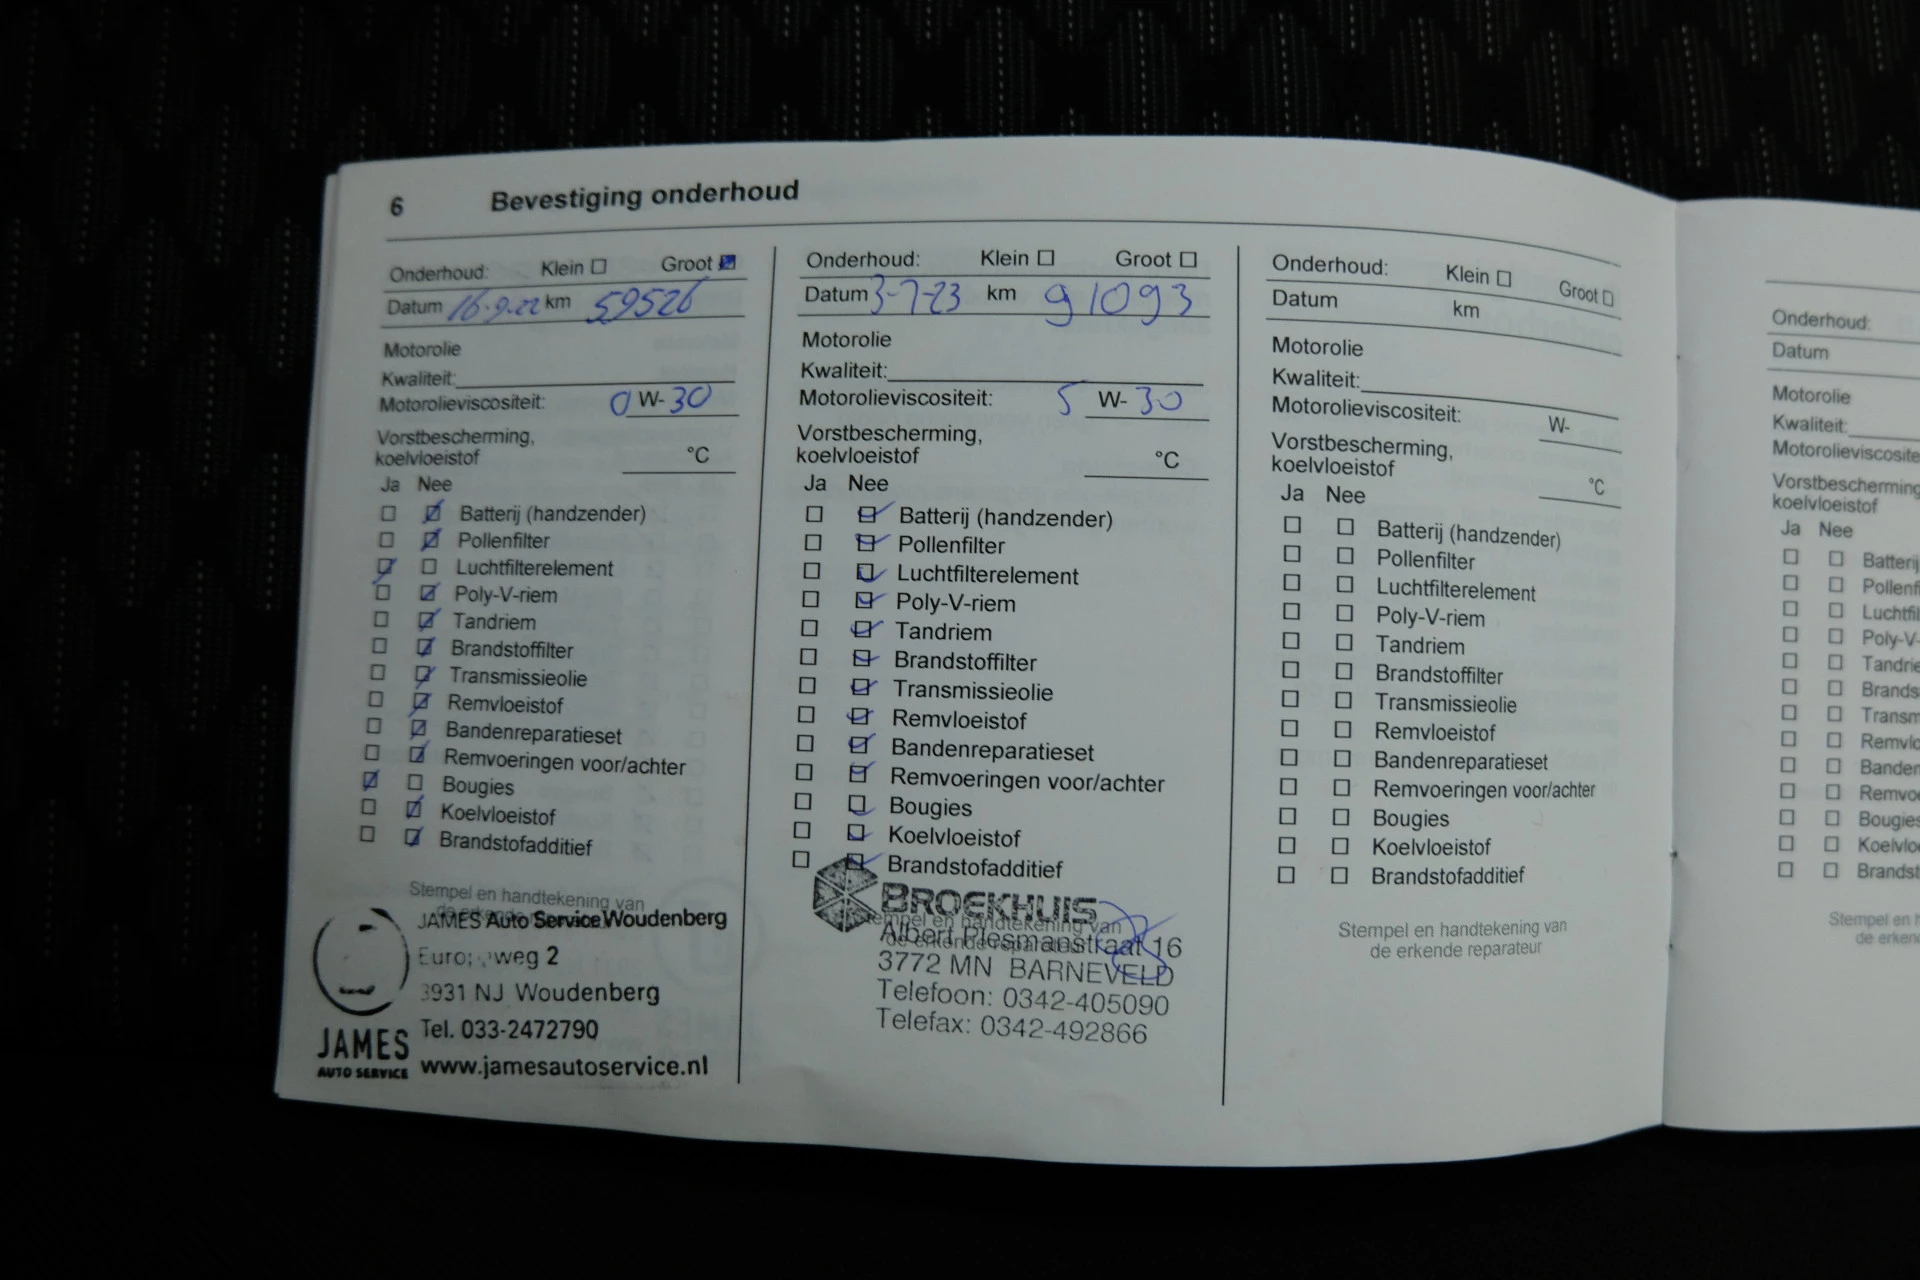 6 Bevestiging onderhoud
Onderhoud: Klein Groot
Datum 16-9-22 km 59526
Motorolie
Kwaliteit:
Motorolieviscositeit: 0 W- 30
Vorstbescherming,
koelvloeistof °C
Ja Nee
Batterij (handzender)
Pollenfilter
Luchtfilterelement
Poly-V-riem
Tandriem
Brandstoffilter
Transmissieolie
Remvloeistof
Bandenreparatieset
Remvoeringen voor/achter
Bougies
Koelvloeistof
Brandstofadditief
Stempel en handtekening van
JAMES Auto Service Woudenberg
weg 2
3931 NJ Woudenberg
Tel. 033-2472790
www.jamesautoservice.nl
JAMES
AUTO SERVICE
Onderhoud: Klein Groot
Datum 3-7-23 km 91093
Motorolie
Kwaliteit:
Motorolieviscositeit: 5 W- 30
Vorstbescherming,
koelvloeistof °C
Ja Nee
Batterij (handzender)
Pollenfilter
Luchtfilterelement
Poly-V-riem
Tandriem
Brandstoffilter
Transmissieolie
Remvloeistof
Bandenreparatieset
Remvoeringen voor/achter
Bougies
Koelvloeistof
Brandstofadditief
BROEKHUIS
Stempel en handtekening van
Albert Plesmanstraat 16
de erkende reparateur
3772 MN BARNEVELD
Telefoon: 0342-405090
Telefax: 0342-492866
Onderhoud: Klein Groot
Datum km
Motorolie
Kwaliteit:
Motorolieviscositeit: W-
Vorstbescherming,
koelvloeistof °C
Ja Nee
Batterij (handzender)
Pollenfilter
Luchtfilterelement
Poly-V-riem
Tandriem
Brandstoffilter
Transmissieolie
Remvloeistof
Bandenreparatieset
Remvoeringen voor/achter
Bougies
Koelvloeistof
Brandstofadditief
Stempel en handtekening van
de erkende reparateur
Onderhoud:
Datum
Motorolie
Kwaliteit:
Motorolieviscosite
Vorstbescherming
koelvloeistof
Ja Nee
Batterij
Pollenf
Luchtfil
Poly-V-
Tandrie
Brands
Transm
Remvlo
Banden
Remvoe
Bougies
Koelvloe
Brandst
Stempel en h
de erken